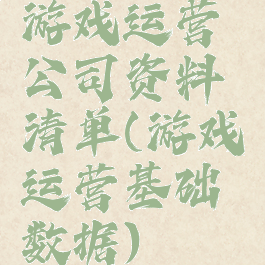 游戏运营
公司资料
清单(游戏
运营基础
数据)